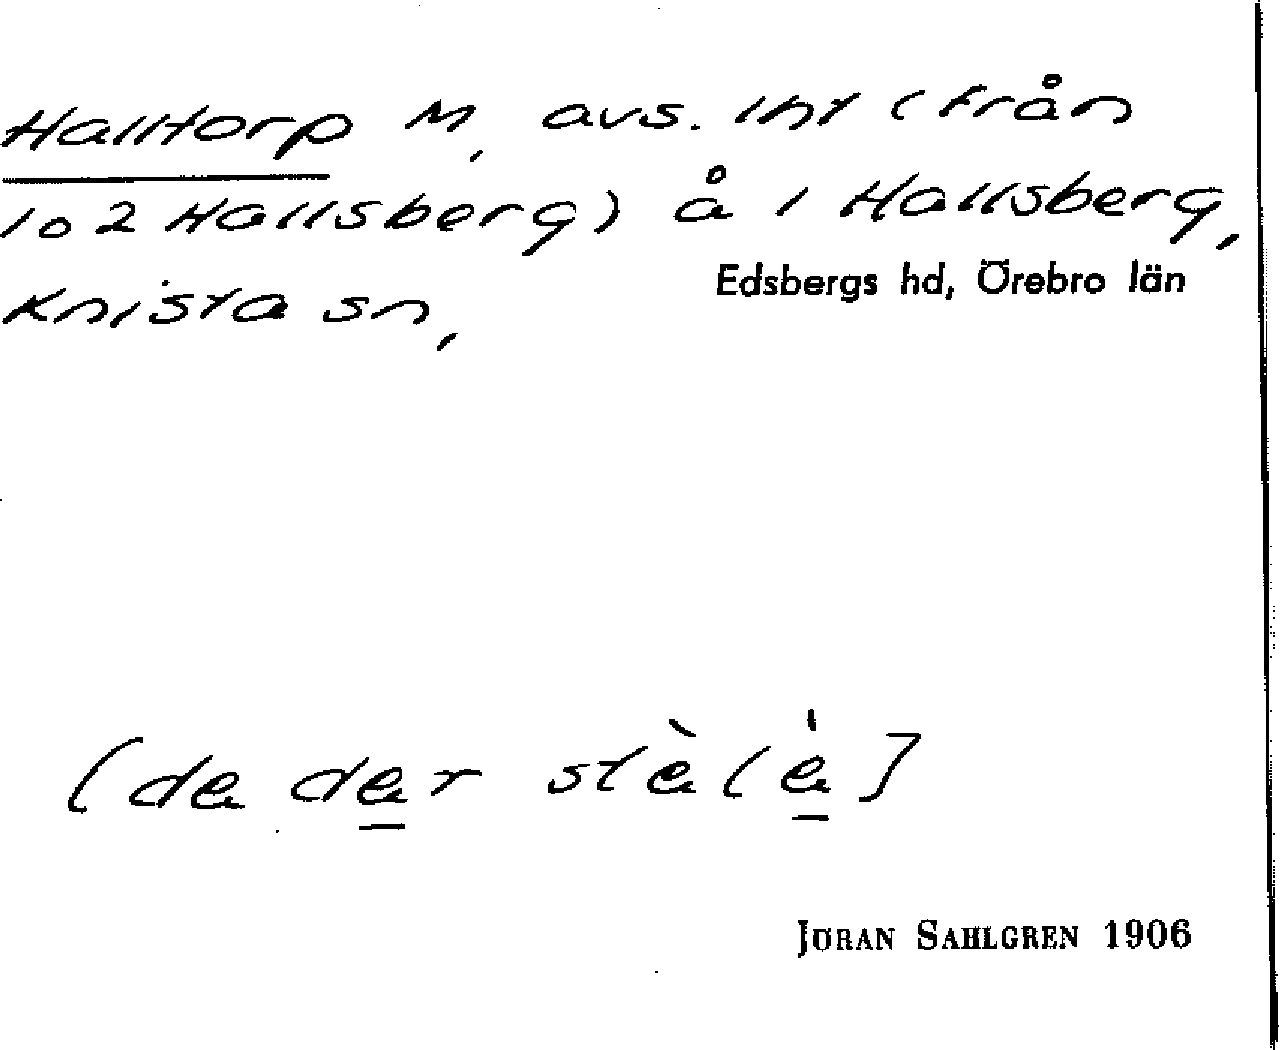 Halltorp M, avs. int (från
1 o 2 Hallsberg) å 1 Hallsberg,
Knista sn, Edsbergs hd, Örebro län
JÖRAN SAHLGREN 1906